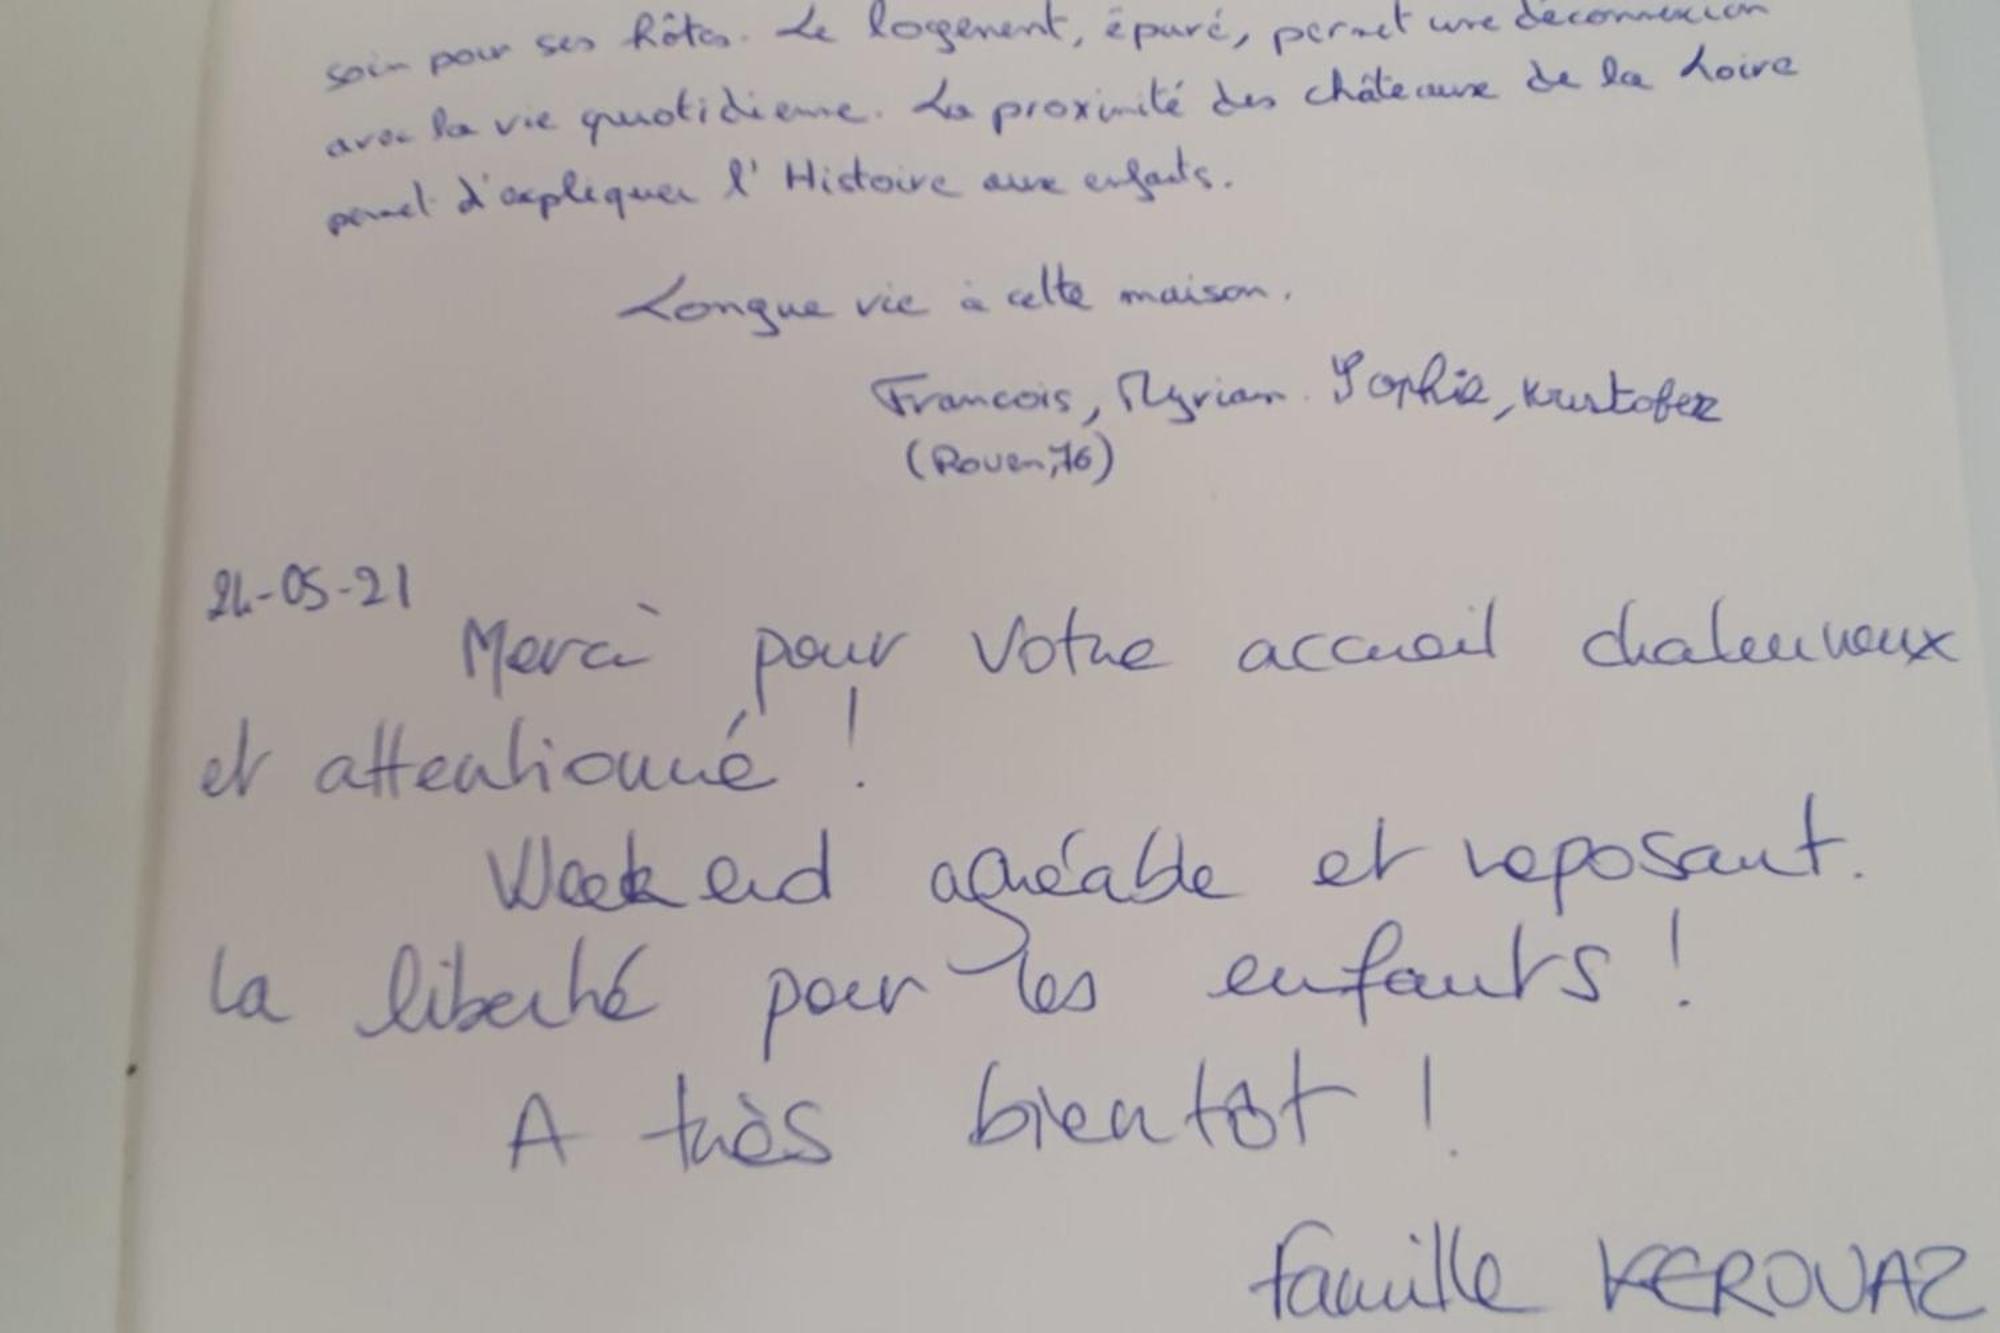 soin pour ses hôtes. Le logement, épuré, permet une déconnexion
avec la vie quotidienne. La proximité des châteaux de la Loire
permet d'expliquer l'Histoire aux enfants.
Longue vie à cette maison.
Francois, Myriam. Sophie, Kristofer
(Rouen, 76)
24-05-21
Merci pour votre accueil chaleureux
et attentionné !
Week end agréable et reposant.
La liberté pour les enfants !
A très bientôt !
famille KEROUAZ